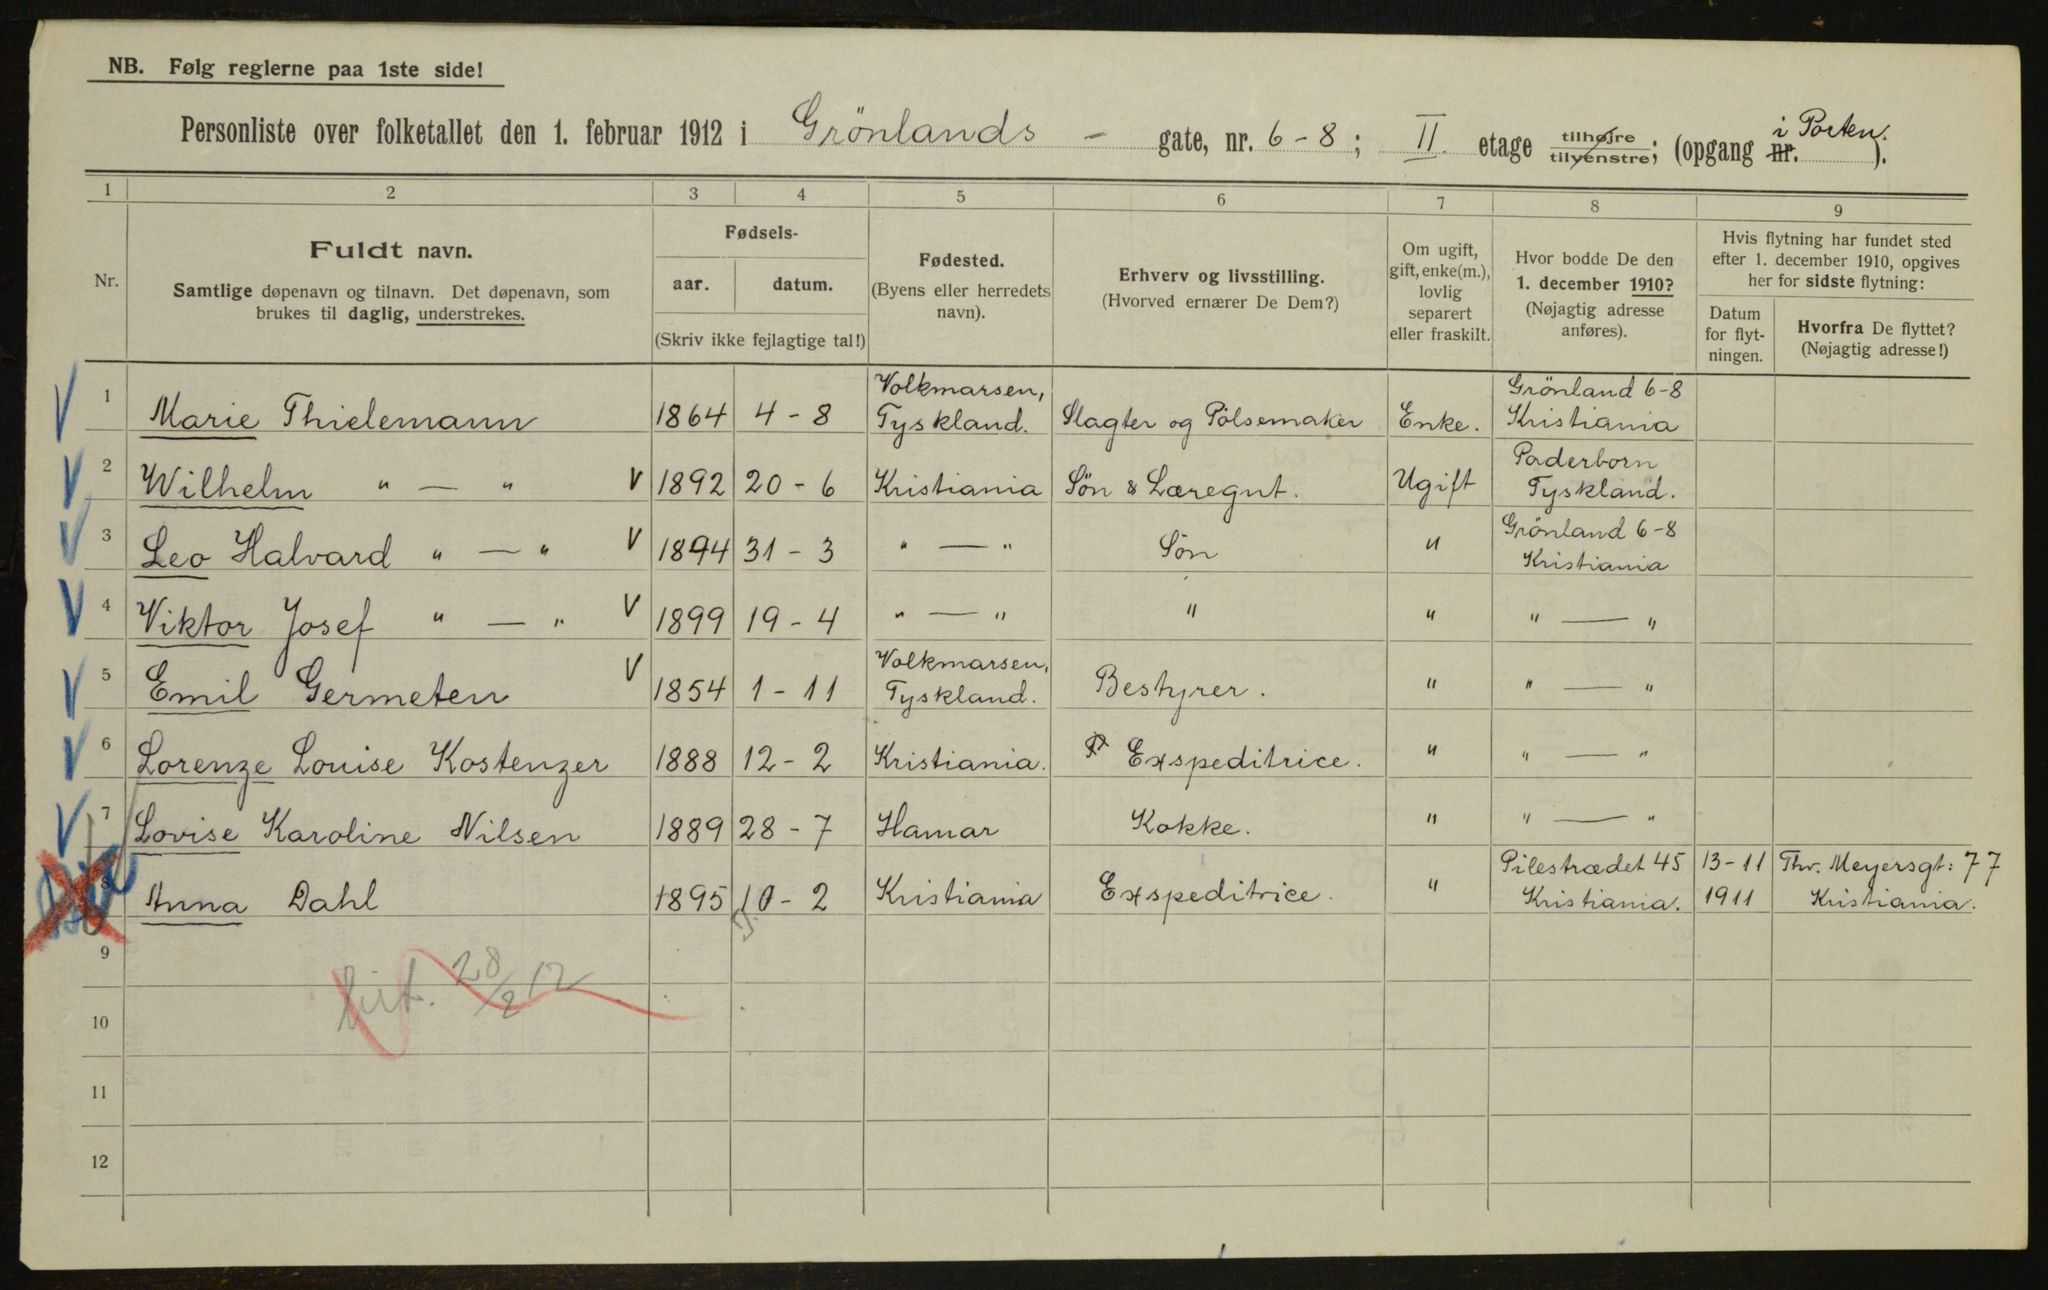 NB. Følg reglerne paa 1ste side!
Personliste over folketallet den 1. februar 1912 i Grönlands - gate, nr. 6-8; II. etage tilhøjre/tilvenstre; (opgang nr. i Porten.).
1 2 3 4 5 6 7 8 9
Nr.
Fuldt navn.
Samtlige døpenavn og tilnavn. Det døpenavn, som
brukes til daglig, understrekes.
Fødsels-
aar. datum.
(Skriv ikke fejlagtige tal!)
Fødested.
(Byens eller herredets
navn).
Erhverv og livsstilling.
(Hvorved ernærer De Dem?)
Om ugift,
gift, enke(m.),
lovlig
separert
eller fraskilt.
Hvor bodde De den
1. december 1910?
(Nøjagtig adresse
anføres).
Hvis flytning har fundet sted
efter 1. december 1910, opgives
her for sidste flytning:
Datum
for flyt-
ningen.
Hvorfra De flyttet?
(Nøjagtig adresse!)
1 Marie Thielemann 1864 4-8 Volkmarsen, Tyskland. Slagter og Pölsemaker Enke. Grönland 6-8 Kristiania
2 Wilhelm " — " V 1892 20-6 Kristiania Sön & Læregut. Ugift Paderborn Tyskland.
3 Leo Halvard " — " V 1894 31-3 " — " Sön " Grönland 6-8 Kristiania
4 Viktor Josef " — " V 1899 19-4 " — " " " " — "
5 Emil Germeten V 1854 1-11 Volkmarsen, Tyskland. Bestyrer. " " — "
6 Lorenze Louise Kostenzer 1888 12-2 Kristiania. Exspeditrice. " " — "
7 Lovise Karoline Nilsen 1889 28-7 Hamar Kokke. " " — "
8 Anna Dahl 1895 10-2 Kristiania Exspeditrice. " Pilestrædet 45 Kristiania. 13-11 1911 Thv. Meyersgt: 77 Kristiania.
9
28/2 12
10
11
12